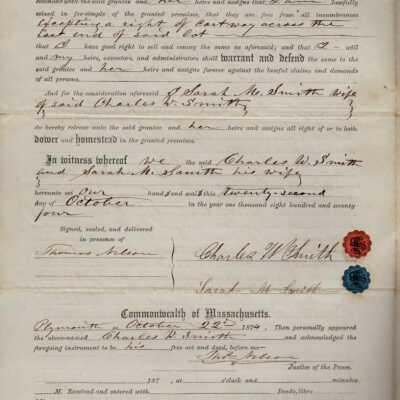 masses with the said grantee and her heirs and assigns that I am lawfully
seized in fee-simple of the granted premises, that they are free from all incumbrances
Excepting a right of Cartway across the
East end of said lot
that I have good right to sell and convey the same as aforesaid; and that I will
and my heirs, executors, and administrators shall warrant and defend the same to the
said grantee and her heirs and assigns forever against the lawful claims and demands
of all persons.
And for the consideration aforesaid I Sarah M. Smith wife
of said Charles W. Smith
do hereby release unto the said grantee and her heirs and assigns all right of or to both
dower and homestead in the granted premises.
In witness whereof we the said Charles W. Smith
and Sarah M. Smith his wife
hereunto set our hands and seals this twenty-second
day of October in the year one thousand eight hundred and seventy
four
Signed, sealed, and delivered
in presence of
Thomas Nelson
Charles W. Smith
Sarah M Smith
Commonwealth of Massachusetts.
Plymouth ss October 22d 1874 Then personally appeared
the above-named Charles W. Smith and acknowledged the
foregoing instrument to be his free act and deed, before me
Thos Nelson
Justice of the Peace.
187 , at o'clock and minutes
M. Received and entered with Deeds, libro